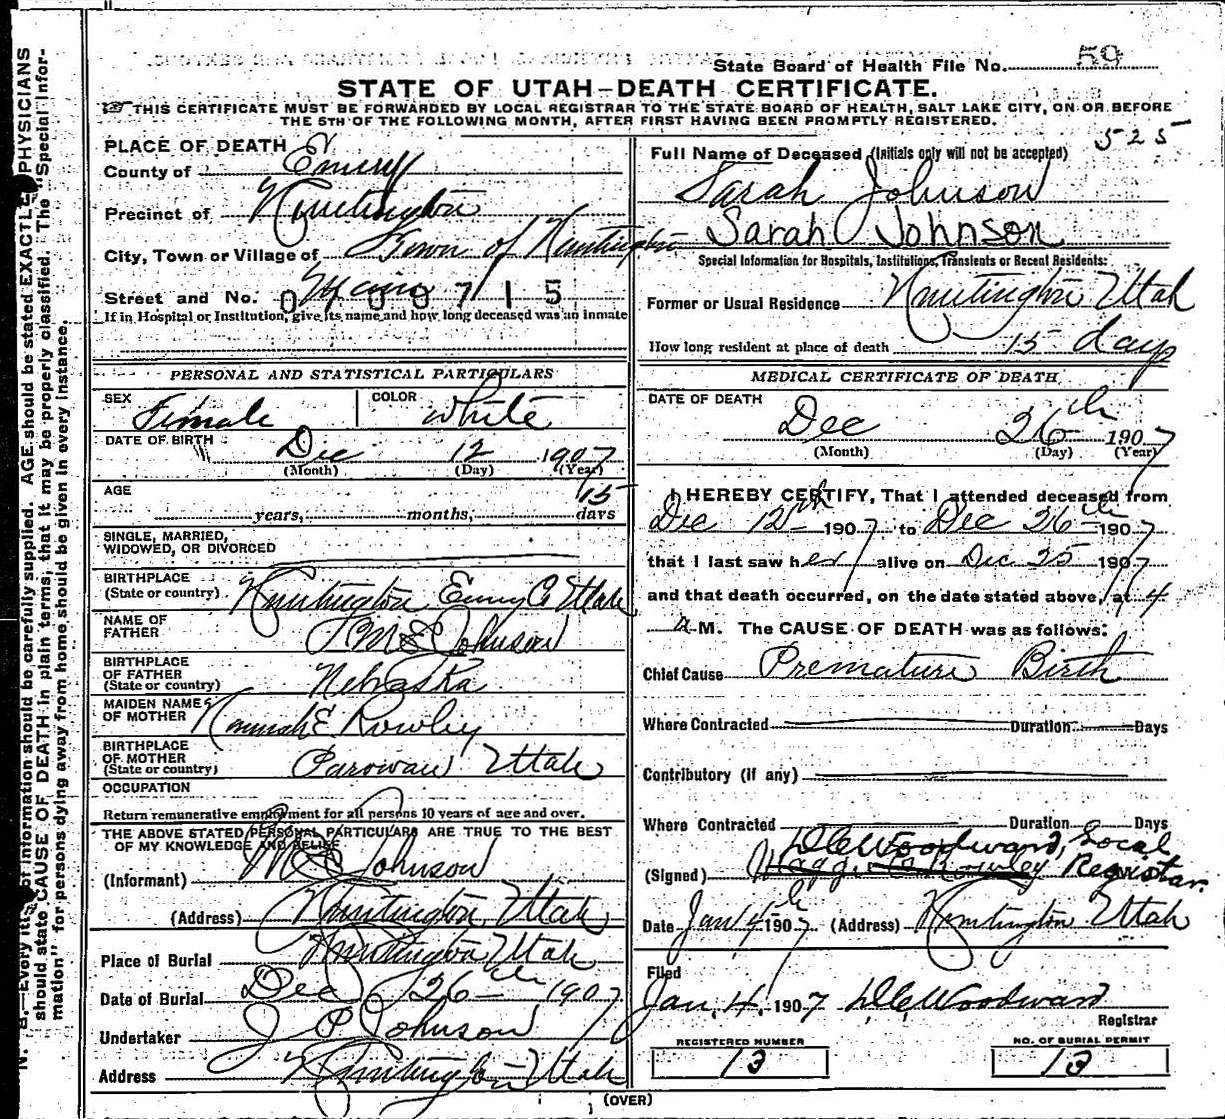 State Board of Health File No. 59
STATE OF UTAH–DEATH CERTIFICATE.
THIS CERTIFICATE MUST BE FORWARDED BY LOCAL REGISTRAR TO THE STATE BOARD OF HEALTH, SALT LAKE CITY, ON OR BEFORE
THE 5TH OF THE FOLLOWING MONTH, AFTER FIRST HAVING BEEN PROMPTLY REGISTERED.
PLACE OF DEATH
County of Emery
Precinct of Huntington
City, Town or Village of Town of Huntington
Street and No. Main
0400715
If in Hospital or Institution, give its name and how long deceased was an inmate
PERSONAL AND STATISTICAL PARTICULARS
SEX Female COLOR White
DATE OF BIRTH Dec 12 1907
(Month) (Day) (Year)
AGE 15
years, months, days
SINGLE, MARRIED,
WIDOWED, OR DIVORCED
BIRTHPLACE
(State or country) Huntington Emery Co Utah
NAME OF
FATHER Johnson
BIRTHPLACE
OF FATHER
(State or country) Nebraska
MAIDEN NAME
OF MOTHER Hannah E Rowley
BIRTHPLACE
OF MOTHER
(State or country) Parowan Utah
OCCUPATION
Return remunerative employment for all persons 10 years of age and over.
THE ABOVE STATED PERSONAL PARTICULARS ARE TRUE TO THE BEST
OF MY KNOWLEDGE AND BELIEF
(Informant) Johnson
(Address) Huntington, Utah
Place of Burial Huntington Utah
Date of Burial Dec 26th 1907
Undertaker J P Johnson
Address Huntington Utah
525
Full Name of Deceased (Initials only will not be accepted)
Sarah Johnson
Sarah Johnson
Special Information for Hospitals, Institutions, Transients or Recent Residents:
Former or Usual Residence Huntington Utah
How long resident at place of death 15 days
MEDICAL CERTIFICATE OF DEATH
DATE OF DEATH
Dec 26th 1907
(Month) (Day) (Year)
I HEREBY CERTIFY, That I attended deceased from
Dec 12th 1907 to Dec 26th 1907
that I last saw her alive on Dec 25 1907
and that death occurred, on the date stated above, at 4
a M. The CAUSE OF DEATH was as follows:
Chief Cause Premature Birth
Where Contracted Duration Days
Contributory (if any)
Where Contracted Duration Days
Woodward, Local
(Signed) Rowley Registar.
Date Jan 4th 1907 (Address) Huntington Utah
Filed
Jan, 4, 1907 Woodward
Registrar
REGISTERED NUMBER
13
NO. OF BURIAL PERMIT
13
(OVER)
N. B.—Every item of information should be carefully supplied. AGE should be stated EXACTLY. PHYSICIANS
should state CAUSE OF DEATH in plain terms, that it may be properly classified. The "Special Infor-
mation" for persons dying away from home should be given in every instance.